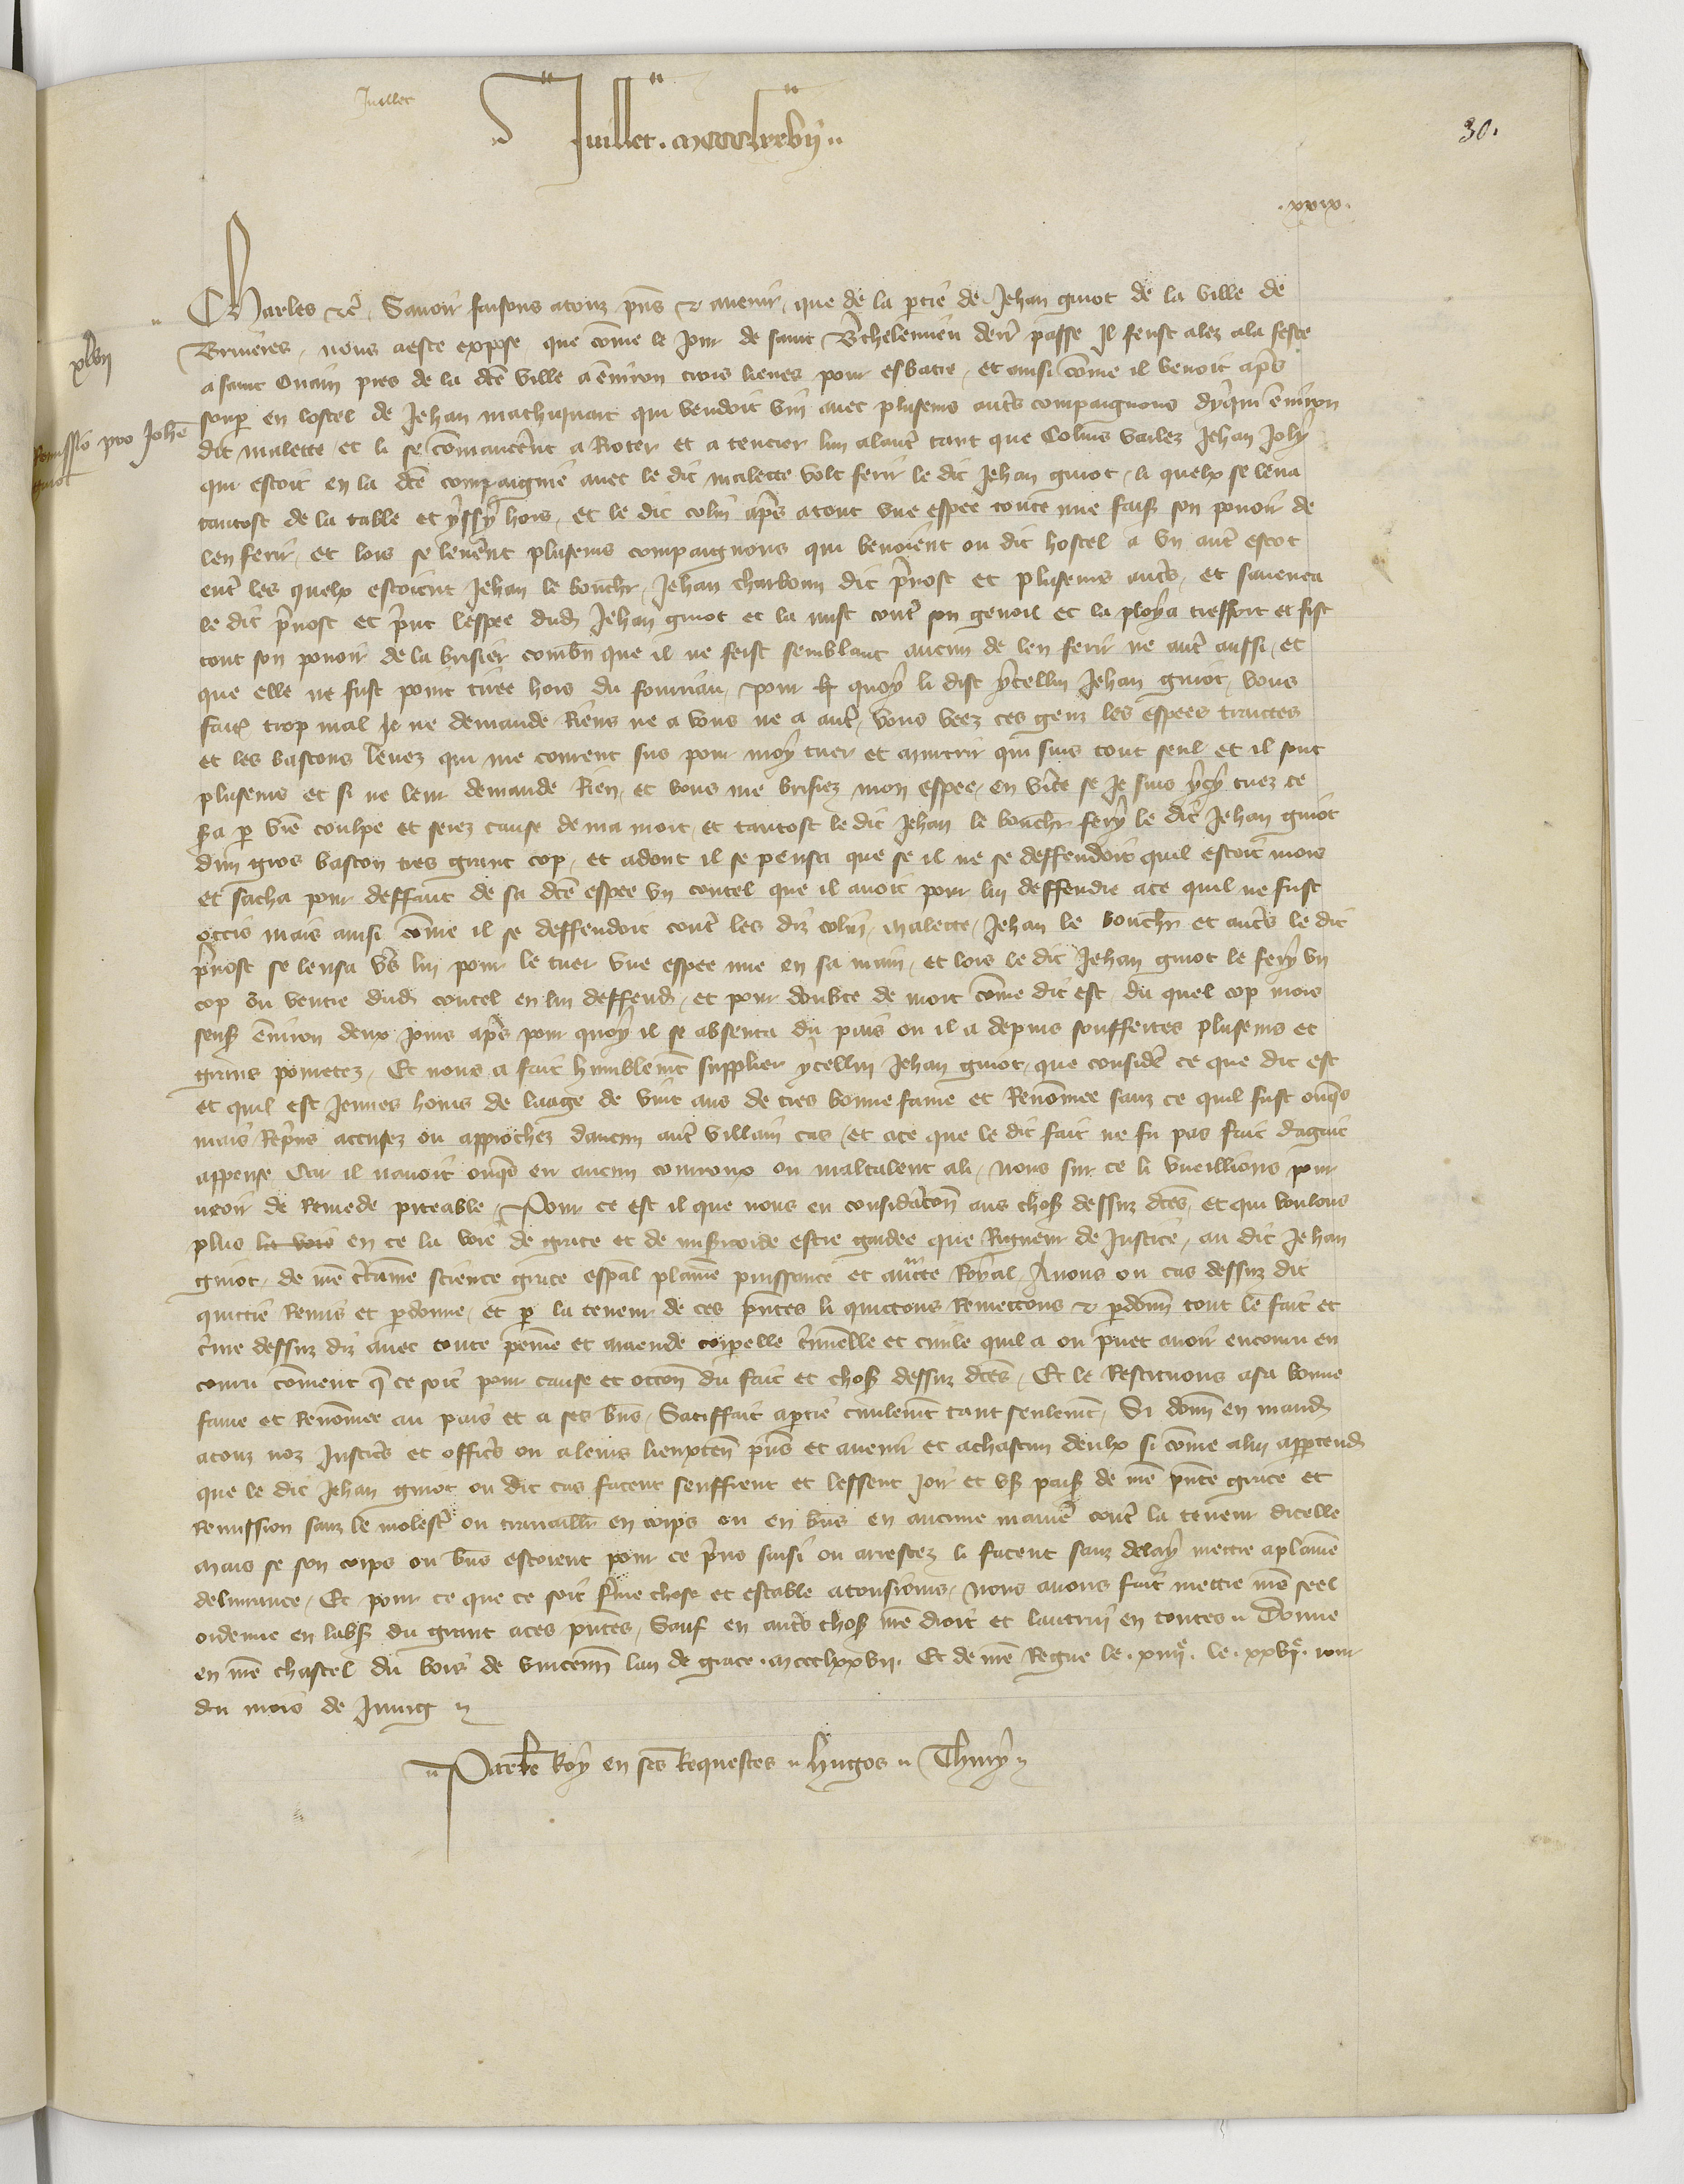 Juillet
Juillet . mccclxxvii
30.
.xxix.
Charles etc̄. Savoir faisons a touz p̄ns et avenir, que de la ptie de Jehan guiot de la ville de
Bruieres, nous a este expose, que cōme le jour de saint B̄thelemieu dern̄ passe Il feust alez a la feste
a saint Ouain pres de la dc̄e ville a ēuiron trois lieues pour esbatre, et ainsi cōme il venoit ap̄s
soup en lostel de Jehan mathiquart qui vendoit vin avec pluseurs aut̄s compaignons dyqui ēuiron
dit malette, et li se cōmancer̄nt a Roter et a tencier lun a laut̄ tant que Colins vailez Jehan Joly
qui estoit en la dc̄e compaignie avec le dit malette volt ferir le dit Jehan guiot, li quelx se leva
tantost de la table et yssy hors, et le dit colin ap̄s a tout une espee toute nue fais̄ son povoir de
len ferir, et lors se lever̄nt pluseurs compaignons qui bevoient ou dit hostel a un aut̄ escot
ent̄ les quelx estoient Jehan le bouch̄r, Jehan charbonn dit p̄vost et pluseurs aut̄s, et s'avenca
le dit p̄vost et p̄nt lespee dud̄ Jehan guiot et la mist cont̄ son genoil et la ploya tresfort et fist
tout son povoir de la brisier combn̄ que il ne feist semblant aucun de len ferir ne aut̄ aussi, et
que elle ne fust point tiree hors du fourriau, pour quoy li dist ycellui Jehan guiot, vous
fait̄ trop mal je ne demande Riens ne a vous ne a aut̄, vous veez ces genz les espees traictes
et les bastons levez qui me courent sus pour moy tuer et murtrir qui suis tout seul et il sont
pluseurs et si ne leur demande Rien, et vous me brisiez mon espee, en v̄ite se je suis ycy tuez ce
s̄a p vr̄e coulpe et serez cause de ma mort, et tantost le dit Jehan le bouch̄r fery le dit Jehan guiot
dun gros baston tres grant cop, et adont il se pensa que se il ne se deffendoit quil estoit mors
et sacha pour deffaut de sa dc̄e espee un coutel que il avoit pour lui deffendre a ce quil ne fust
occis mais ainsi cōme il se deffendoit cont̄ les diz colin, malette, Jehan le bouch̄r et aut̄s le dit
p̄vost se lensa v̄s lui pour le tuer une espee nue en sa main, et lors le dit Jehan guiot le fery un
cop ou ventre dud̄ coutel en lui deffend̄, et pour doubte de mort cōme dit est, du quel cop mors
sens̄ ēuiron deux jours ap̄s pour quoy il se absenta du pais ou il a depuis souffertes pluseurs et
grans povretez, Et nous a fait humblemt supplier ycellui Jehan guiot, que consider̄ ce que dit est
et quil est jeunes homs de laage de vint ans de tres bonne fame et Renōmee sanz ce quil fust onq̄s
mais Rep̄ns accusez ou approchez daucun aut̄ villain cas, et a ce que le dit fait ne fu pas fait daguit
appense Car il navoit onq̄s eu aucun courroux ou maltalent a li, nous sur ce li vueillions pour
veoir de Remede piteable, Pour ce est il que nous eu considāc̄on aus chos̄ dessuz dc̄es, et qui voulons
plus en ce la voie de grace et de mis̄icorde estre gardee que Rigueur de Justice, au dit Jehan
guiot, de nr̄e c̄taine science grace esp̄al plaine puissance et auc̄te Royal, Avons ou cas dessuz dit
quittie Remis et pdonne, et p la teneur de ces p̄ntes li quittons Remettons et pdonn̄ tout le fait et
c̄me dessuz diz avec toute peine et amende corpelle c̄minelle et civile quil a ou puet avoir encouru en
couru cōment q̄ ce soit pour cause et occ̄on du fait et chos̄ dessuz dc̄es, Et le Restituons a sa bonne
fame et Renōmee au pais et a ses bn̄s, Satiffait a ptie civilemt tant seulemt, Si donn̄ en mand̄
a touz noz Justic̄s et offic̄s ou a leurs lieuxten̄ p̄ns et avenir et a chascun deulx si cōme a lui apptend̄
que le dit Jehan guiot ou dit cas facent seuffrent et lessent joir et us̄ pais̄ de nr̄e p̄nte grace et
Remission sanz le molest̄ ou travaill̄r en corps ou en bn̄s en aucune manier̄ cont̄ la teneur dicelle
mais se son corps ou bn̄s estoient pour ce p̄ns saisi ou arrestez li facent sanz delay mettre a plaine
delivrance, Et pour ce que ce soit f̄me chose et estable a tousiours, nous avons fait mettre nr̄e seel
ordenne en labs̄ du grant a ces p̄ntes, Sauf en aut̄s chos̄ nr̄e droit et lautruy en toutes. Donne
en nr̄e chastel du bois de vincenn̄ lan de grace .mccclxxvii. Et de nr̄e Regne le .xiiiiᵉ. le .xxviᵉ. jour
du mois de Juing
Par le Roy en ses Requestes. Hugos. Thiuy
xlvii
Remissio pro Joh̄e
guiot